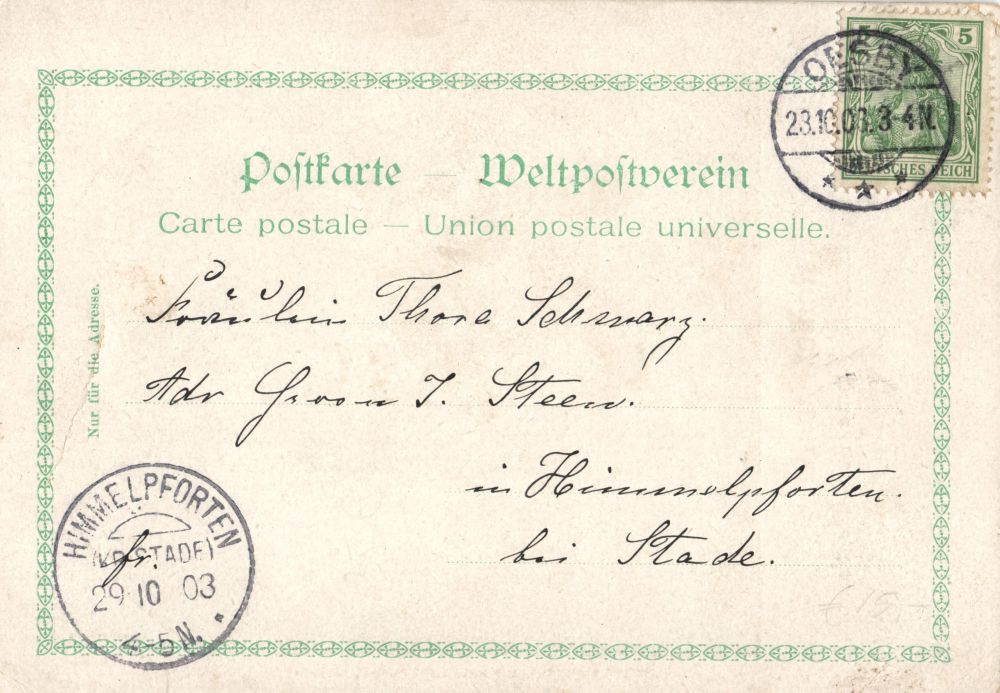 5 5
OESBY
23.10.03. 3-4N.
DEUTSCHES REICH
Postkarte — Weltpostverein
Carte postale — Union postale universelle.
Nur für die Adresse.
Fräulein Thora Schwarz.
Adr Herrn J. Steen.
in Himmelpforten.
bei Stade.
fr.
HIMMELPFORTEN
(KR. STADE)
29 10 03
4-5N.
£ 15